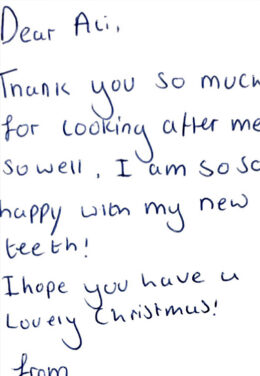 Dear Ali,
Thank you so much
for looking after me
so well, I am so so
happy with my new
teeth!
I hope you have a
Lovely Christmas!
from